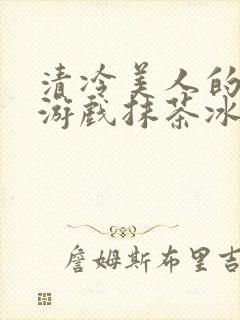 清冷美人的
游戏抹茶冰
詹姆斯布里吉